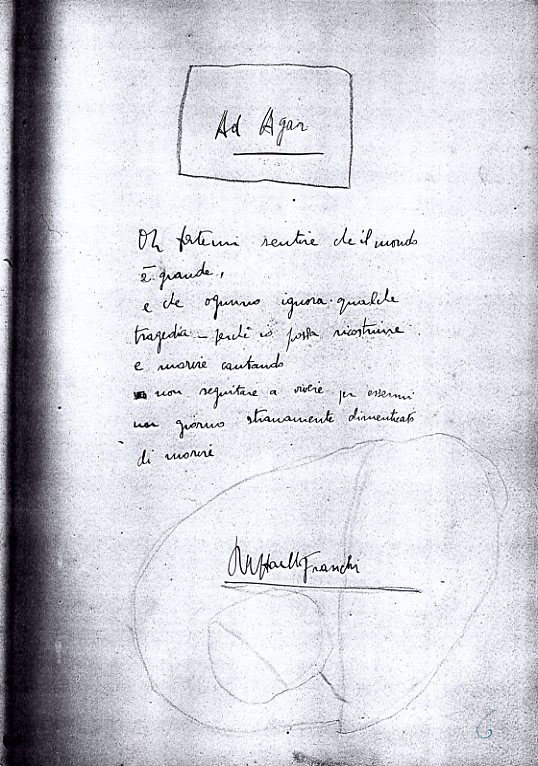 Ad Agar
Oh fatemi sentire che il mondo
è grande,
e che ognuno ignora qualche
tragedia – perché io possa ricostruire
e morire cantando
non seguitare a vivere per essermi
un giorno stranamente dimenticato
di morire
Raffaello Franchi
6